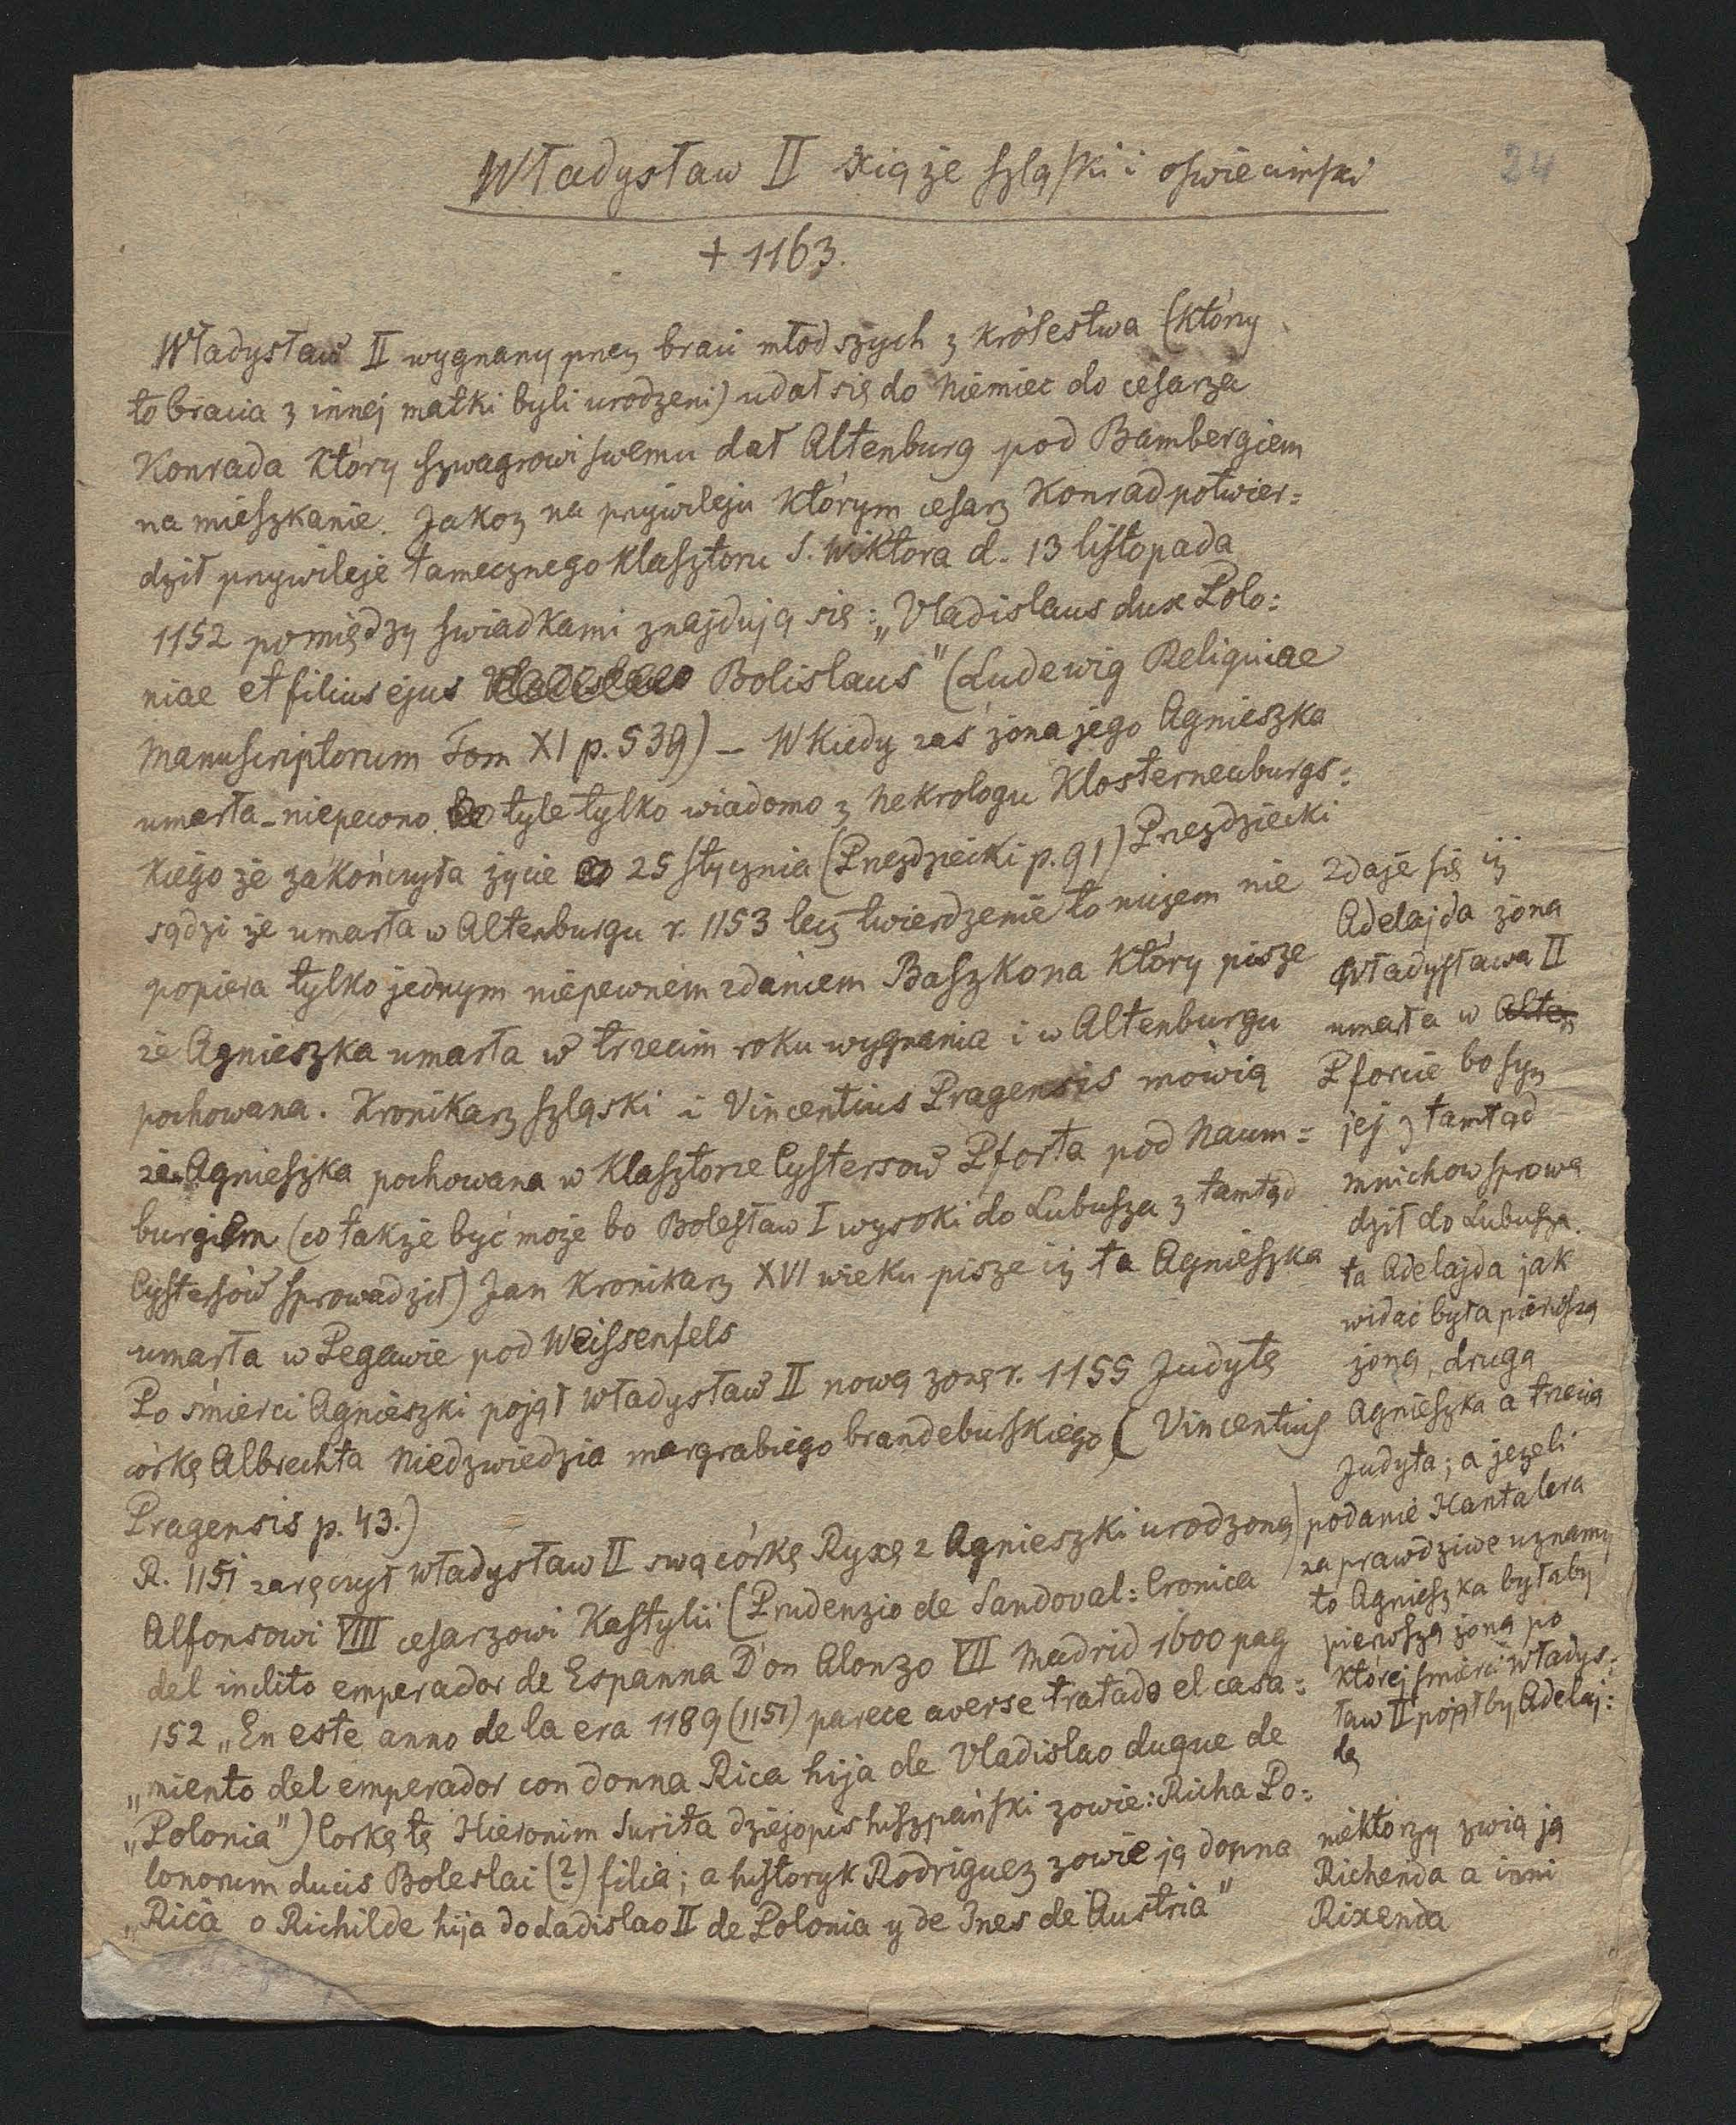 24
Władysław II xiąże szląski i oswiecimski
+ 1163.
Władysław II wygnany przez braci młodszych z królestwa (którzy
to bracia z innej matki byli urodzeni) udał się do Niemiec do cesarza
Konrada który szwagrowi swemu dał Altenburg pod Bambergiem
na mieszkanie. Jakoz na przywileju którym cesarz Konrad potwier=
dził przywileje tamecznego klasztoru S. Wiktora d. 13 listopada
1152 pomiędzy swiadkami znajdują się: „Vladislaus dux Polo=
niae et filius ejus Bolislaus" (Ludewig Reliquiae
Manuscriptorum Tom XI p. 539) — W kiedy zaś żona jego Agnieszka
umarła - niepewno. tyle tylko wiadomo z nekrologu Klosterneuburgs=
kiego że zakończyła życie 25 stycznia (Przezdziecki p. 91) Przezdziecki
sądzi że umarła w Altenburgu r. 1153 lecz twierdzenie to niczem nie
popiera tylko jednym niepewnem zdaniem Baszkona który pisze
że Agnieszka umarła w trzecim roku wygnania i w Altenburgu
pochowana. Kronikarz szląski i Vincentius Pragensis mówią
że Agnieszka pochowana w klasztorze Cystersow Pforta pod Naum=
burgiem (co także być może bo Bolesław I wysoki do Lubusza z tamtąd
Cystersów sprowadził) Jan Kronikarz XVI wieku pisze iż ta Agnieszka
umarła w Pegawie pod Weissenfels
Po śmierci Agnieszki pojął Władysław II nową zonę r. 1155 Judytę
córkę Albrechta Niedzwiedzia margrabiego brandeburskiego (Vincentius
Pragensis p. 43.)
R. 1151 zaręczył Władysław II swą córkę Ryxę z Agnieszki urodzoną
Alfonsowi VIII cesarzowi Kastylii (Prudenzio de Sandoval: Cronica
del inclito emperador de Espanna D'on Alonzo VII Madrid 1600 pag
152 „En este anno de la era 1189 (1151) parece averse tratado el casa=
„miento del emperador con donna Rica hija de Vladislao duque de
„Polonia") Corkę tę Hieronim Surita dziejopis hiszpański zowie: Richa Po=
lonorum ducis Boleslai (?) filia; a historyk Rodriguez zowie ją donna
„Rica o Richilde hija do Ladislao II de Polonia y de Ines de Austria"
zdaje się iż
Adelajda żona
Władysława II
umarła w Alten
Pforcie bo syn
jej z tamtąd
mnichow sprowa
dził do Lubusza.
ta Adelajda jak
widać była pierwszą
żoną, druga
Agnieszka a trzecia
Judyta; a jeżeli
podanie Hantalera
za prawdziwe uznamy
to Agnieszka byłaby
pierwszą żoną po
której smierci Władys=
ław II pojąłby Adelaj=
dę
niektorzy zwią ją
Richenda a inni
Rixenda